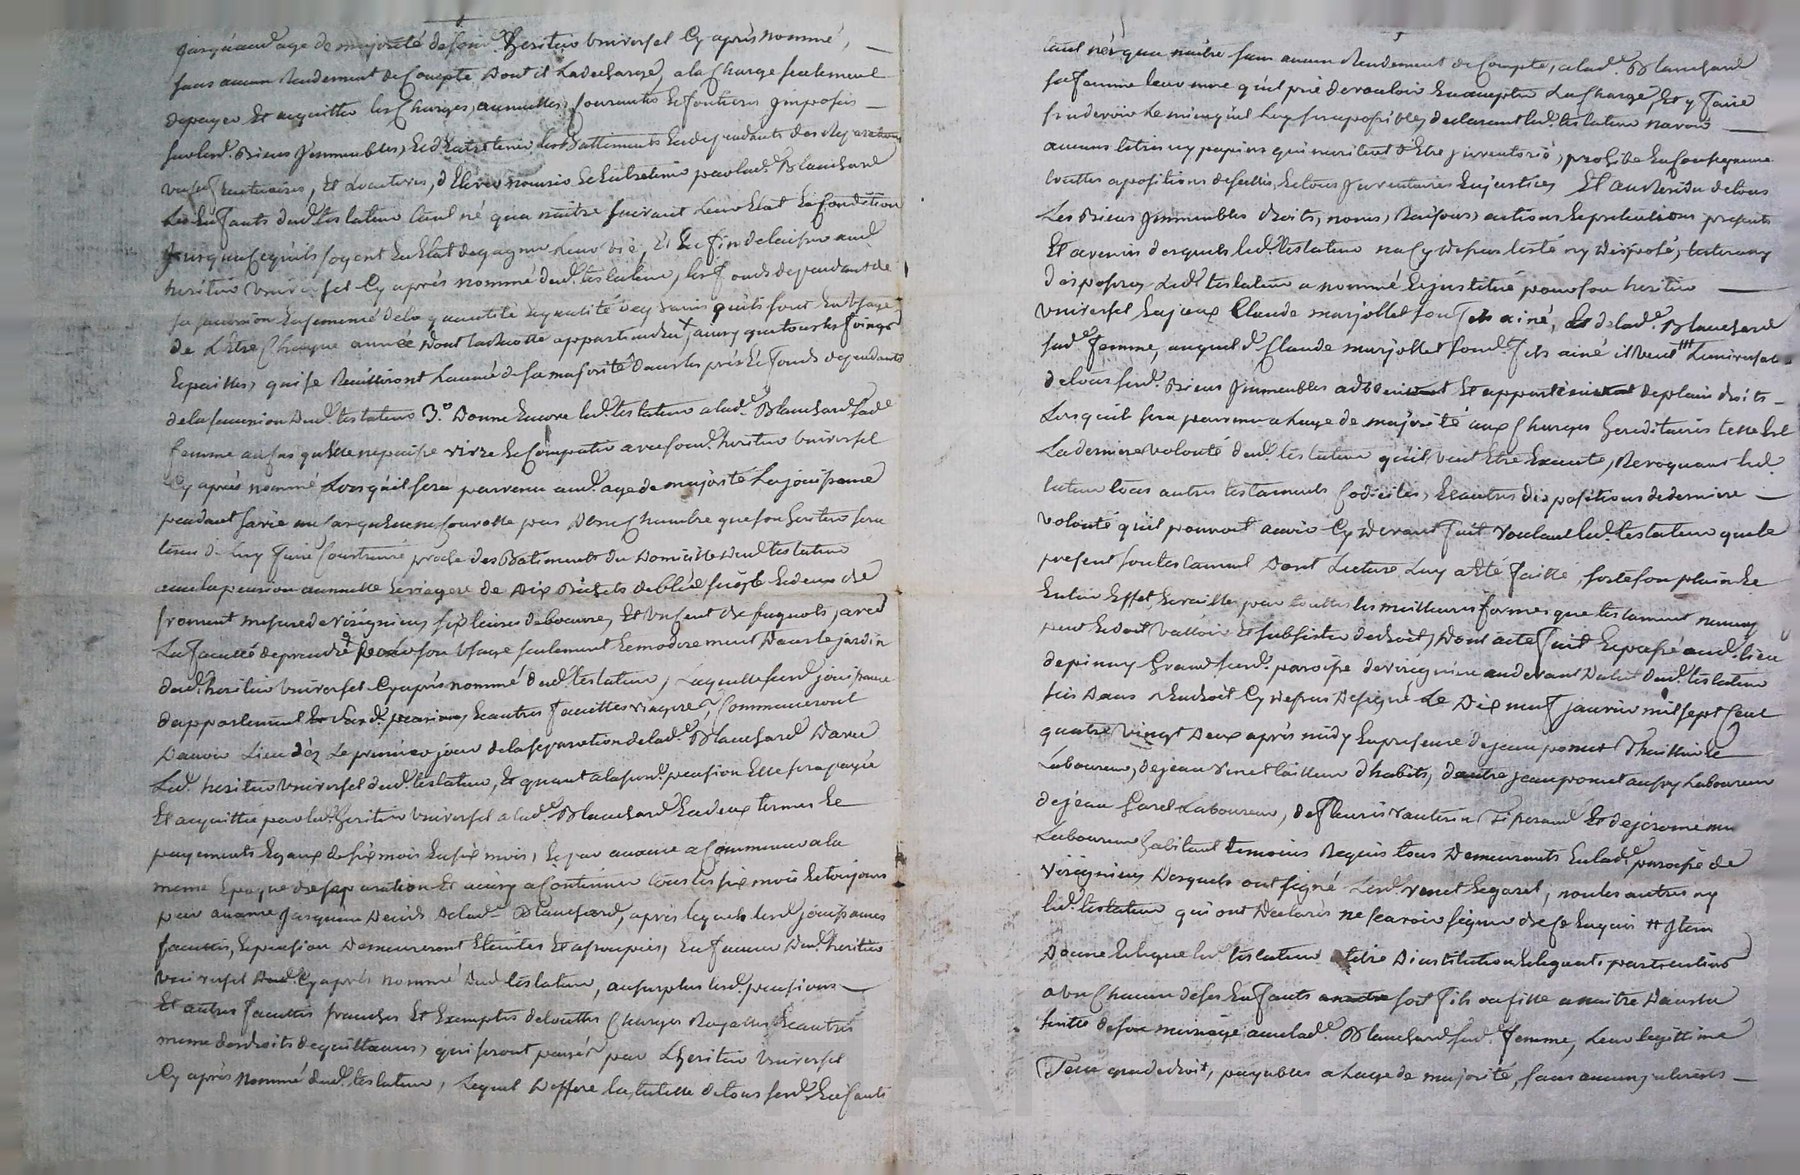 jusqu'aud. age de majorité de son d. heritier universel cy après nommé,
sans aucun rendement de compte dont il la décharge, a la charge seulement
de payer et acquitter les charges annuelles, courantes et foncieres imposés
sur lesd. Biens immeubles, et d'entretenir les battiments en dependants des reparations
et locatives, d'Elever nourrir et entretenir par lad.e Blanchard
les Enfants dud. testateur tant né qua naitre suivant leur Etat et condition
jusquacequ'ils soyent en Etat de gagner leur vie, Et en fin de laisser aud.
heritier universel cy après nommé dud. testateur, les fonds dependants de
sa succession
de L'etre chaque année dont appartiendra, aussy que tous les foings
et pailles, qui se l'année de sa majorité dans les prés et fonds dependants
de la succession dud. testateur 3.° Donne Encore led. testateur a lad.e Blanchard sad.e
femme au cas qu'elle ne puisse vivre et compatir avec son d. heritier universel
cy après nommé Lorsqu'il sera parvenu aud. age de majorité La jouissance
pendant sa vie d'une chambre que son heritier sera
tenu de luy faire construire proche des Batiments du Domicille dud. testateur
avec la pension annuelle et viagere de Dix Bichets de bled seigle et deux de
froment mesure de six livres de beurre, Et un cent de fagnots, avec
La faculté de prendre pour son usage seulement et moderement Dans le jardin
dud. heritier universel cy après nommé dud. testateur, Laquelle susd. jouissance
d'appartement et susd. pension, et autres facultés viageres, Commenceront
D'avoir Lieu dèz Le premier jour de la separation de lad.e Blanchard D'avec
Led. heritier universel dud. testateur, Et quant a la susd. pension Elle sera payée
Et acquittée par led. heritier universel a lad.e Blanchard En deux termes et
payements Egaux de six mois en six mois, et par avance a commencer a la
meme Epoque de separation Et ainsy a Continuer tous les six mois et toujours
par avance jusquau Decès de lad.e Blanchard, après lequel lesd. jouissances
facultés, et pension demeureront Eteintes Et assoupies, En faveur dud. heritier
universel cy après nommé dud. testateur, au surplus lesd. pensions
Et autres facultés franches Et Exemptes de touttes Charges Royalles et autres
meme des droits de quittances, qui seront payés par L'heritier universel
cy après nommé dud. testateur, Lequel Deffere la tutelle de tous sesd. Enfants
tant nés qua naitre sans aucun Rendement de Compte, a lad.e Blanchard
sa femme leur mere qu'il prie de vouloir En accepter La charge, Et y faire
son devoir Le mieux quil luy sera possible, declarant led. testateur navoir
aucuns titres ny papiers qui meritent d'Etre inventorié, prohibe En consequence
touttes apositions de scellés, Et tous inventaires En justice, Et au Residu de tous
Les Biens immeubles droits, noms, Raisons, actions et pretentions presents
Et avenirs desquels led. testateur na cy dessus testé ny disposé,
disposera, Led. testateur a nommé et institué pour son heritier
universel Claude marjollet son fils ainé, Et de lad.e Blanchard
sad.e femme, auquel d. Claude marjollet son d. fils ainé il veut L'université
de tous sesd. Biens immeubles advenir Et appartenir de plain droit
Lorsquil sera parvenu a Lage de majorité aux Charges hereditaires telle Est
La derniere volonté dud. testateur qu'il veut Etre Executé, Revoquant led.
tateur tous autres testaments codiciles, Et autres dispositions de derniere
volonté qu'il pourroit avoir cy devant fait Voulant led. testateur que le
present son testament dont Lecture Luy a Eté faitte, sorte son plain Et
Entier Effet, Et vaille, par touttes les meilleures formes que testament nuncup
peut Et doit valloir Et subsister de droit, Dont acte fait Et passé aud. lieu
depinay Grand sur d. paroisse de au devant du lit dud. testateur
sis Dans L'endroit Cy dessus Designé Le Dix neuf janvier mil sept cent
quatre vingt Deux après midy En presence de jean ponnet
Laboureur, de jean Venet tailleur d'habits, d'autre jean ponnet aussy Laboureur
de jean garel Laboureur, de fleuris vauterin Tisserand Et de jerome
Laboureur habitant temoins Requis tous demeurants En lad. paroisse de
Desquels ont signé Lesd. Venet et garel, non les autres ny
led. testateur qui ont Declarés ne scavoir signer de ce Enquis # Item
Donne Et legue led. testateur a titre D'institution Et legat particulier
a un Chacun de ses Enfants soit fils ou fille a naitre Dans la
suitte de son mariage avec lad.e Blanchard sad.e femme, Leur legittime
Telle que de droit, payables a Lage de majorité, sans aucuns interets